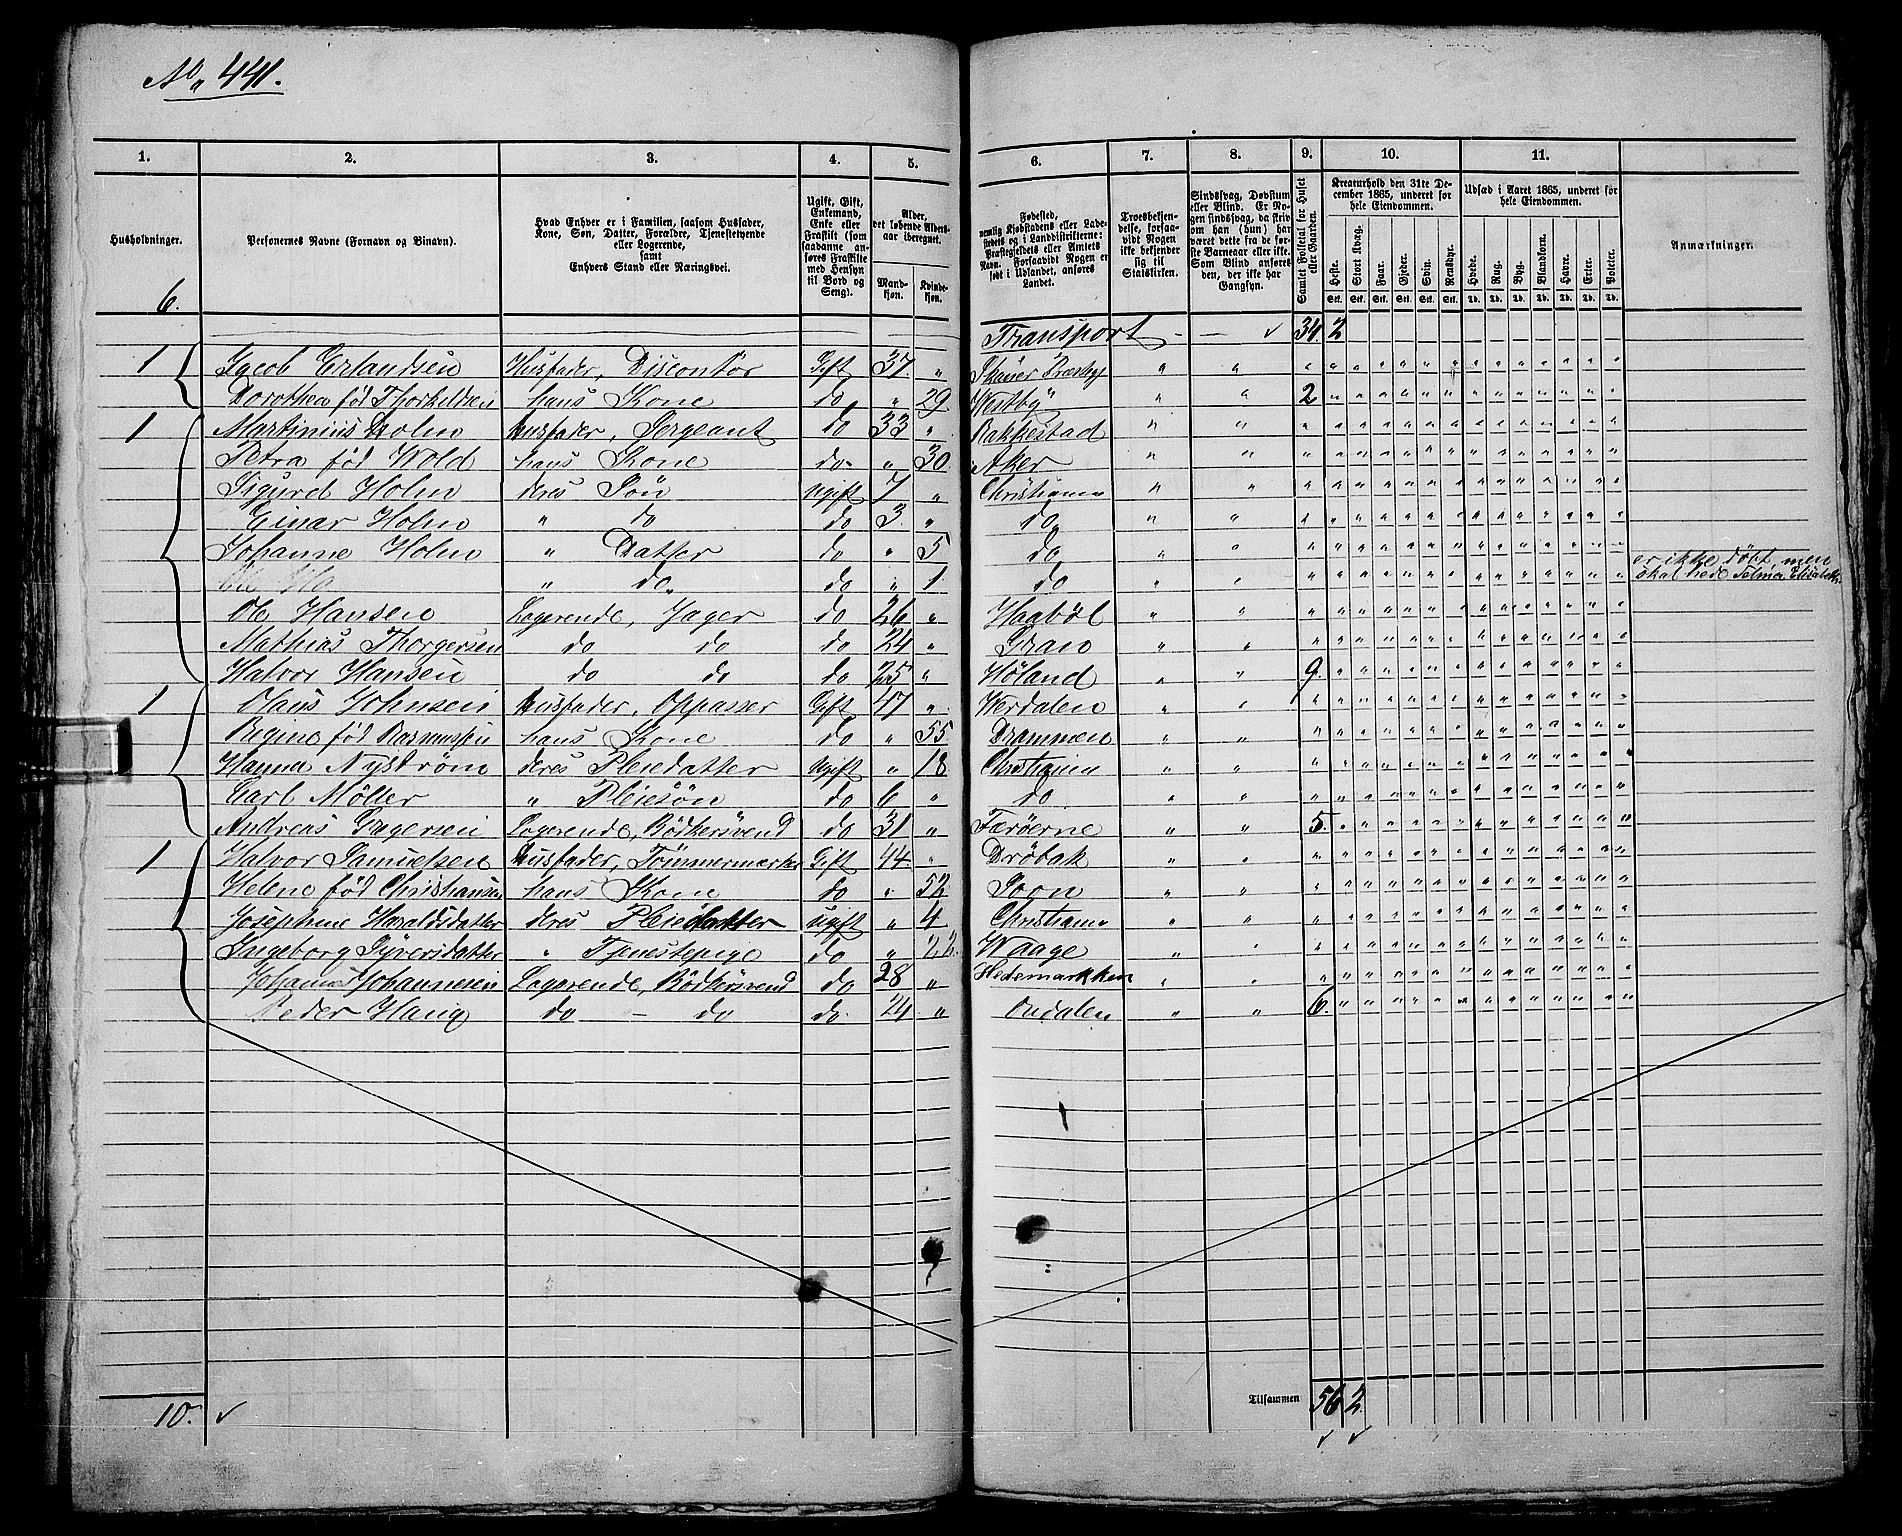 No 441.
1. 2. 3. 4. 5. 6. 7. 8. 9. 10. 11.
Husholdninger.
Personernes Navne (Fornavn og Binavn).
Hvad Enhver er i Familien, saasom Husfader,
Kone, Søn, Datter, Forældre, Tjenestetyende
eller Logerende,
samt
Enhvers Stand eller Næringsvei.
Ugift, Gift,
Enkemand,
Enke eller
Fraskilt (som
saadanne an-
føres Fraskilte
med Hensyn
til Bord og
Seng).
Alder,
det løbende Alders-
aar iberegnet.
Mand-
kjøn.
Kvinde-
kjøn.
Fødested,
nemlig Kjøbstadens eller Lade-
stedets og i Landdistrikterne:
Præstegjeldets eller Amtets
Navn. Forsaavidt Nogen er
født i Udlandet, anføres
Landet.
Troesbekjen-
delse, forsaa-
vidt Nogen
ikke bekjender
sig til
Statskirken.
Sindssvag, Døvstum
eller Blind. Er No-
gen sindssvag, da skriv
om han (hun) har
været dette fra de før-
ste Barneaar eller ikke.
Som Blind anføres
den, der ikke har
Gangsyn.
Samlet Folketal for Huset
eller Gaarden.
Kreaturhold den 31te De-
cember 1865, underet for
hele Eiendommen.
Heste. Stort Kvæg. Faar. Gjeder. Svin. Rensdyr.
Stk. Stk. Stk. Stk. Stk. Stk.
Udsæd i Aaret 1865, underet for
hele Eiendommen.
Hvede. Rug. Byg. Blandkorn. Havre. Erter. Poteter.
Td. Td. Td. Td. Td. Td. Td.
Anmærkninger.
6.
Transport - - ✓ 34. 2
1 Jacob Erlandsen Husfader, Discontör Gift 37. "
Dorothea föd Thorkildsen hans Kone do " 29 Westby " " 2
1 Martinius Holm Husfader, Sergeant do 33 " Rakkestad
Petra föd Wold hans Kone do " 30 Aker
Sigurd Holm deres Sön ugift 7 " Christiania
Einar Holm " do do 3 " do
Johanne Holm " Datter do " 5 do
" do do " 1 do er ikke döpt, men
skal hede Selma Elisabeth
Ole Hansen Logerende, Jager do 26 " Haaböl
Mathias Thorgersen do do do 24 " Gran
Halvor Hansen do do do 25 " Höland 9.
1 Olaus Johnsen Husfader, Oppasser Gift 47 " Werdalen
Regine föd Rasmussen hans Kone do " 55 Drammen
Hanna Nyström deres Pleiedatter Ugift " 18 Christiania
Carl Möller " Pleiesön do 6 " do
Andreas Gregersen Logerende, Bödkersvend do 31 " Færöerne 5.
1 Halvor Samuelsen Husfader, Tömmermærker Gift 44 " Dröbak
Helene föd Christiansen hans Kone do " 52 Soon
Josephine Haraldsdatter deres Pleiedatter ugift " 4 Christiania
Ingeborg Syversdatter " Tjenestepige do " 22. Waage
Johannes Johannesen Logerende, Bödkersvend do 28 " Hedemarkken
Peder Haug do - do do 24 " Ourdalen 6.
Tilsammen 56 2.
10. ✓ ✓ ✓